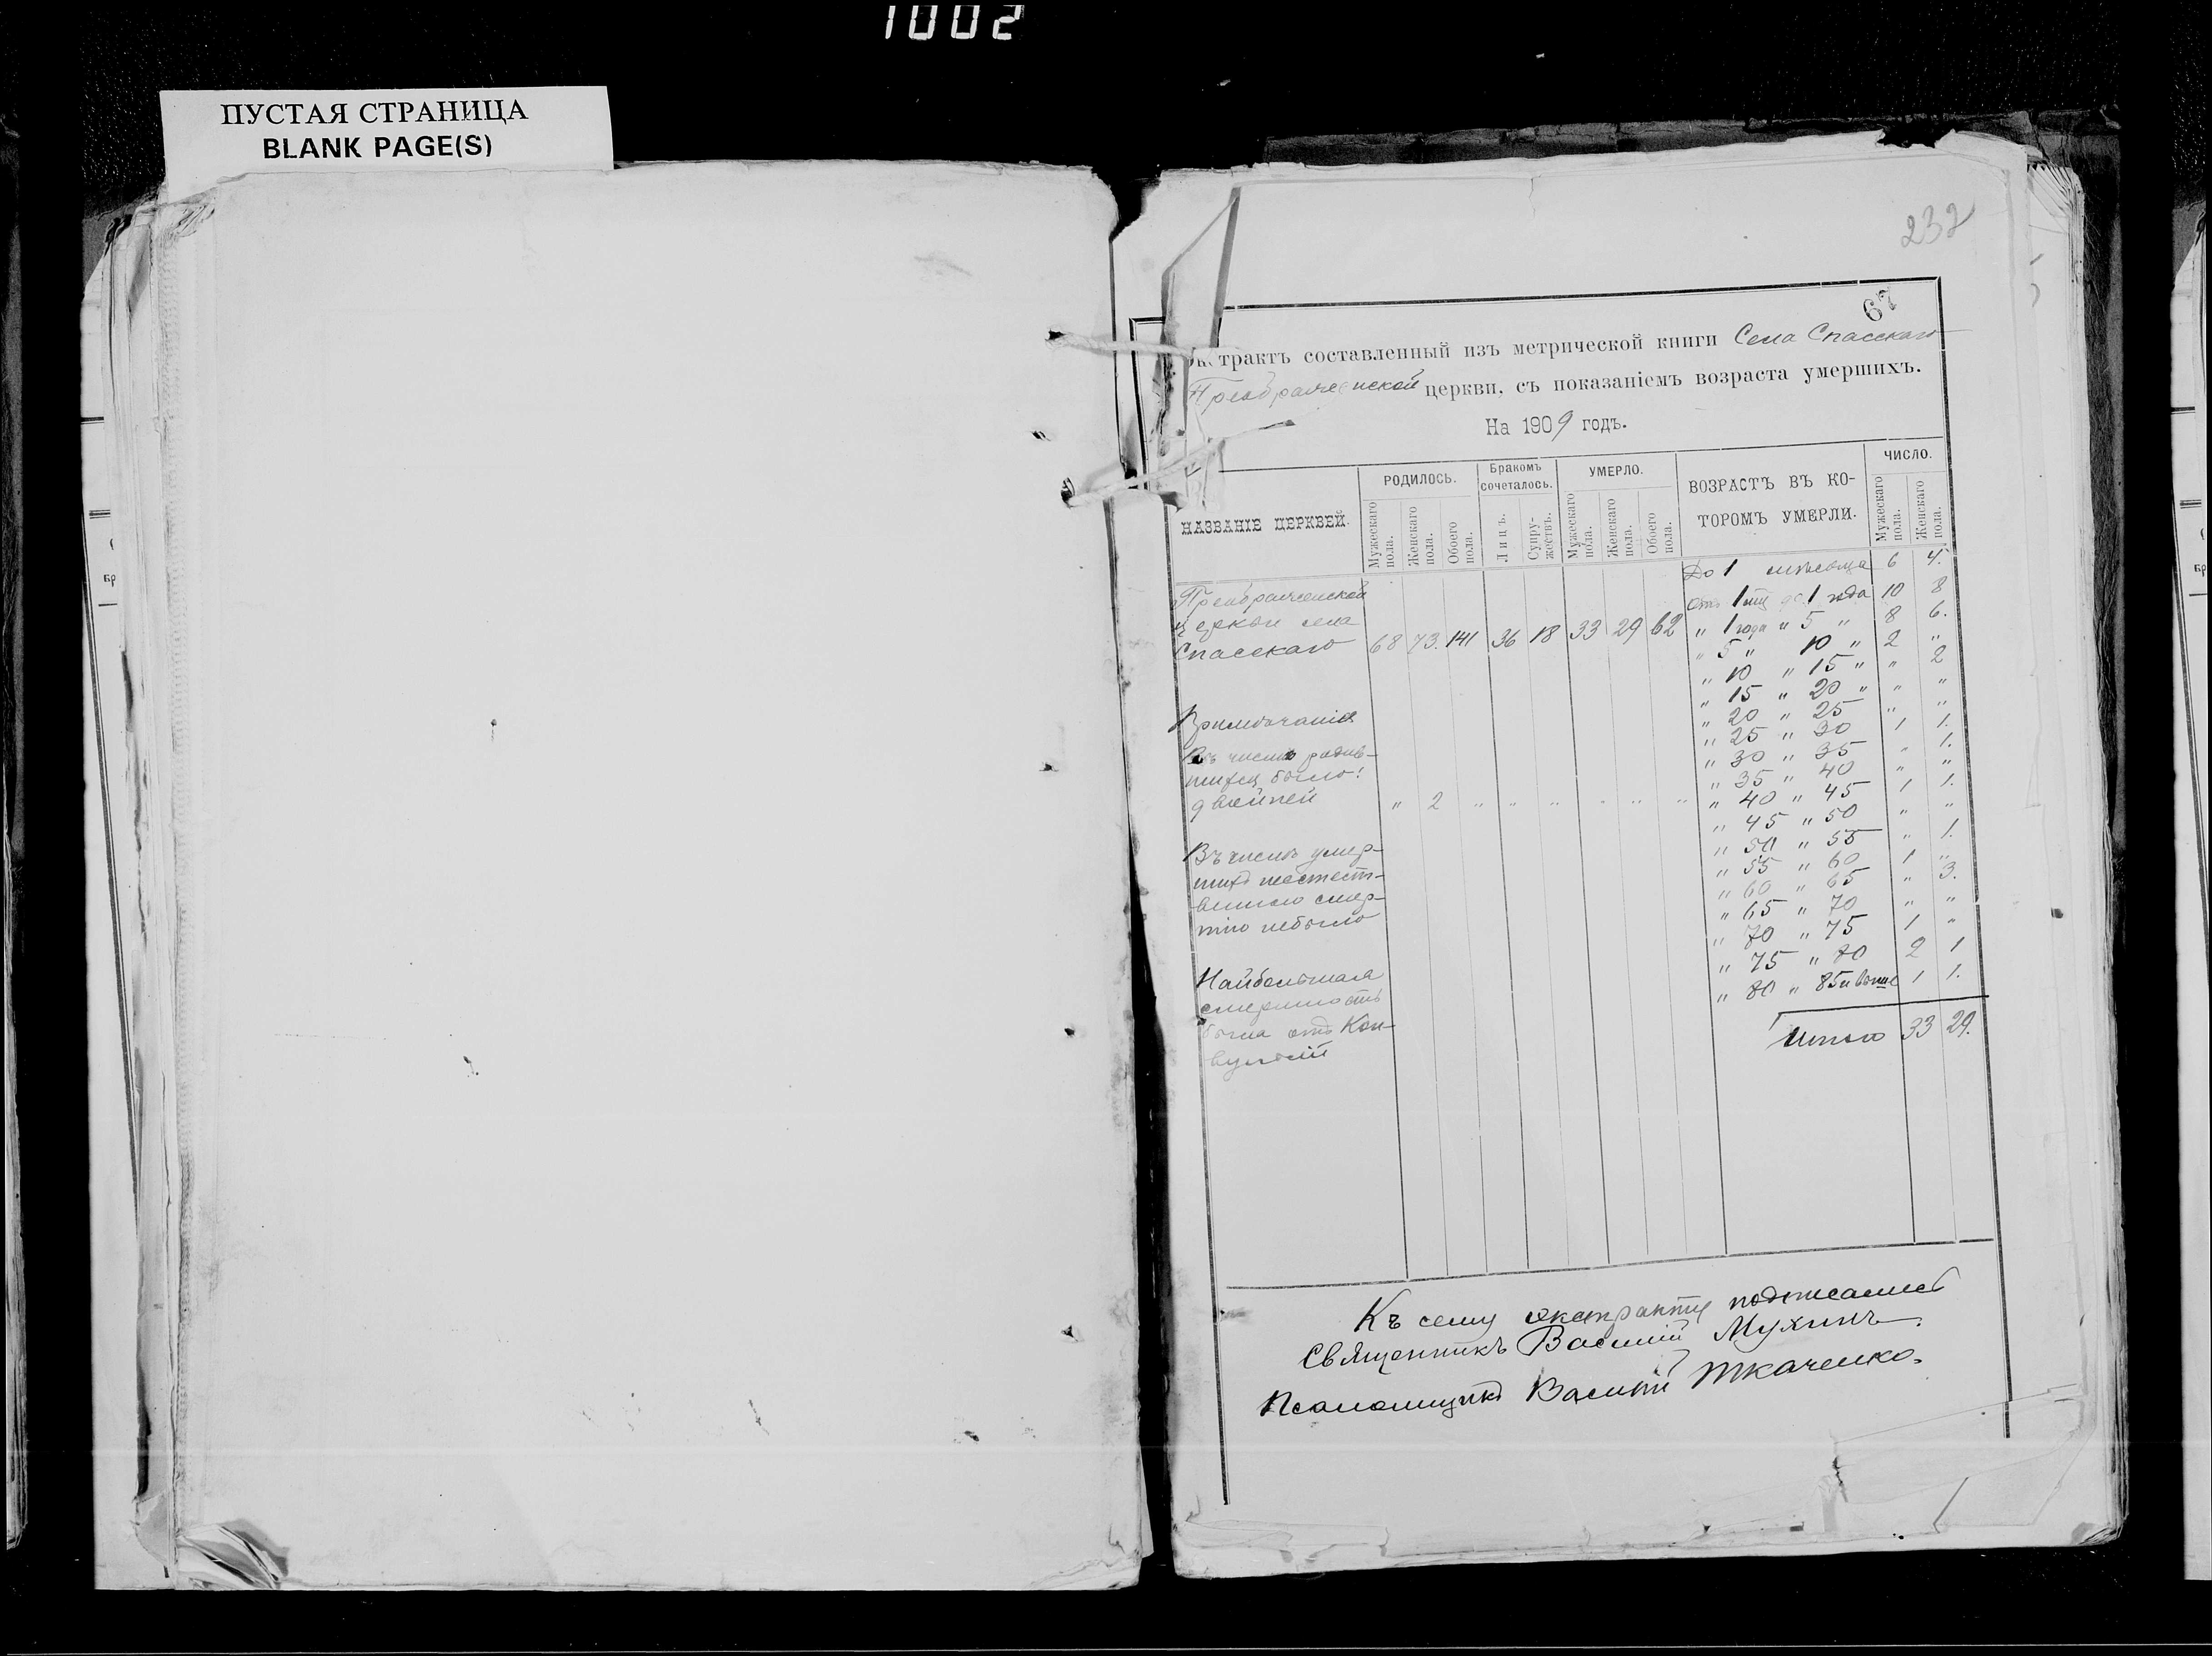 1002
ПУСТАЯ СТРАНИЦА
BLANK PAGE(S)
232
67
трактъ составленный изъ метрической книги Села Спасскаго
Преображенской церкви, съ показаніемъ возраста умершихъ.
На 1909 годъ.
НАЗВАНІЕ ЦЕРКВЕЙ.
РОДИЛОСЬ.
Мужескаго пола.
Женскаго пола.
Обоего пола.
Бракомъ сочеталось.
Лицъ.
Супружествъ.
УМЕРЛО.
Мужескаго пола.
Женскаго пола.
Обоего пола.
ВОЗРАСТЪ ВЪ КО-
ТОРОМЪ УМЕРЛИ.
ЧИСЛО.
Мужескаго пола.
Женскаго пола.
Преображенской
церкви села
Спасскаго 68 73. 141 36 18 33 29 62
Примѣчаніе
Въ числѣ родив-
шихся было:
двойней " 2 " " " " " "
Въ числѣ умер-
шихъ неестест-
венною смер-
тію небыло
Найбольшая
смертность
была отъ Кон-
вульсій
До 1 мѣсяца 6 4.
отъ 1 мц до 1 года 10 8
" 1 года " 5 " 8 6.
" 5 " 10 " 2 "
" 10 " 15 " " 2
" 15 " 20 " " "
" 20 " 25 " "
" 25 " 30 1 1.
" 30 " 35 " 1.
" 35 " 40 " "
" 40 " 45 1 1.
" 45 " 50 " "
" 50 " 55 " 1.
" 55 " 60 1 "
" 60 " 65 " 3.
" 65 " 70 " "
" 70 " 75 1 "
" 75 " 80 2 1
" 80 " 85 и выше 1 1.
Итого 33 29.
Къ сему экстракту подписались
Священникъ Василій Мухинъ.
Псаломщикъ Василій Ткаченко.